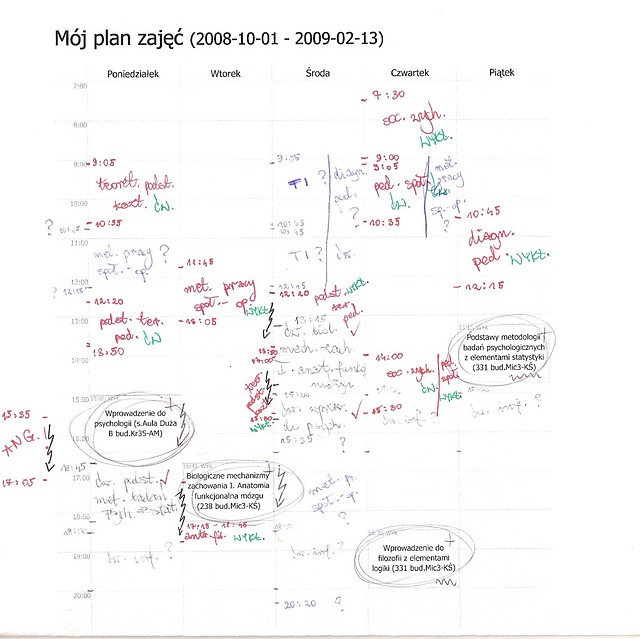 Mój plan zajęć (2008-10-01 - 2009-02-13)
Poniedziałek Wtorek Środa Czwartek Piątek
7:00
8:00
9:00
11:00
12:00
13:00
14:00
15:00
16:00
17:00
18:00
19:00
20:00
9:05
teoret. podst.
kszt. ćw.
10:35
?
met. pracy ?
społ.-op.
? 12:15
12:20
podst. ter.
ped. ćw
13:50
15:35
ANG.!
17:05
Wprowadzenie do
psychologii (s.Aula Duża
B bud.Kr35-AM)
16:45
ćw. podst.
met. badań
psych. + stat.
ćw. inf. ?
11:45
met. pracy
społ.-op.
WYKŁ.
13:05
Biologiczne mechanizmy
zachowania I. Anatomia
funkcjonalna mózgu
(238 bud.Mic3-KŚ)
17:15 - 18:45
antr. fil. WYKŁ.
9:05
TI ?
diagn.
ped.
?
10:35
10:45
TI ? ćw.
12:15
12:20
podst. WYKŁ.
ter.
ped.
13:15
ćw. biol.
mech. zach.
I. anat. funkcj
mózgu
13:50
14:00
15:00
WYKŁ.
ćw. wprow.
do psych.
15:35 ?
met. p.
społ.-op.
?
ćw. inf. ?
20:20 ?
7:30
soc. wych.
WYKŁ.
9:00
9:05
ped. społ.
ćw.
10:35
met.
pracy
sp.-op.
?
14:00
soc. wych.
ćw.
ped.
społ.
WYKŁ.
15:30
ćw. inf. ?
Wprowadzenie do
filozofii z elementami
logiki (331 bud.Mic3-KŚ)
10:45
diagn.
ped. WYKŁ.
12:15
Podstawy metodologii
badań psychologicznych
z elementami statystyki
(331 bud.Mic3-KŚ)
ćw. inf. ?